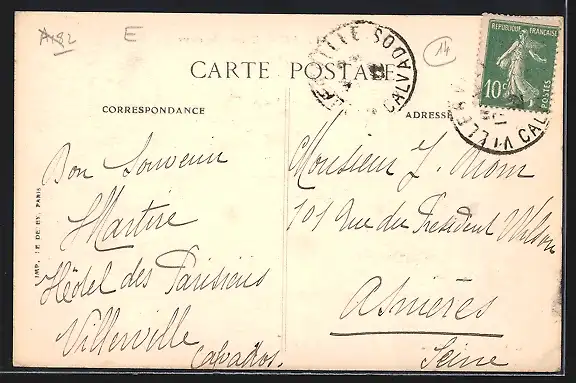 A182
E
14
CARTE POSTALE
CORRESPONDANCE
ADRESSE
RÉPUBLIQUE FRANÇAISE
10c
POSTES
VILLERVILLE CALVADOS
VILLERVILLE CAL
Bon Souvenir
HMartire
Hôtel des Parisiens
Villerville
Calvados.
Monsieur J. Mom
101 Rue du President Wilson
Asnières
Seine
IMP. LE DELEY, PARIS